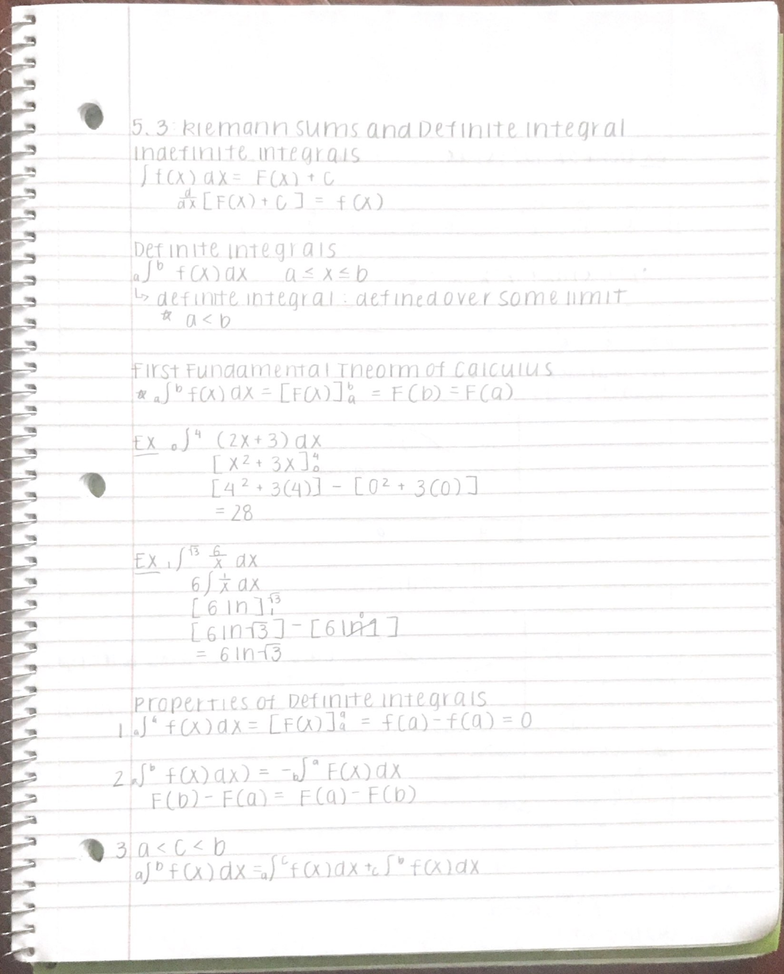 5.3 Riemann Sums and Definite Integral
Indefinite Integrals
∫f(x) dx = F(x) + C
d/dx [F(x) + C] = f(x)
Definite Integrals
a∫b f(x) dx a ≤ x ≤ b
↳ definite integral: defined over some limit
* a < b
First Fundamental Theorm of Calculus
* a∫b f(x) dx = [F(x)]b a = F(b) = F(a)
Ex 0∫4 (2x+3) dx
[x² + 3x]4 0
[4² + 3(4)] - [0² + 3(0)]
= 28
Ex 1∫√3 6/x dx
6∫ 1/x dx
[6 ln]√3 1
[6 ln √3] - [6 ln 1] 0
= 6 ln √3
Properties of Definite Integrals
1. a∫a f(x) dx = [F(x)]a a = f(a) - f(a) = 0
2. a∫b f(x) dx) = -b∫a F(x) dx
F(b) - F(a) = F(a) - F(b)
3 a < c < b
a∫b f(x) dx = a∫c f(x) dx + c∫b f(x) dx